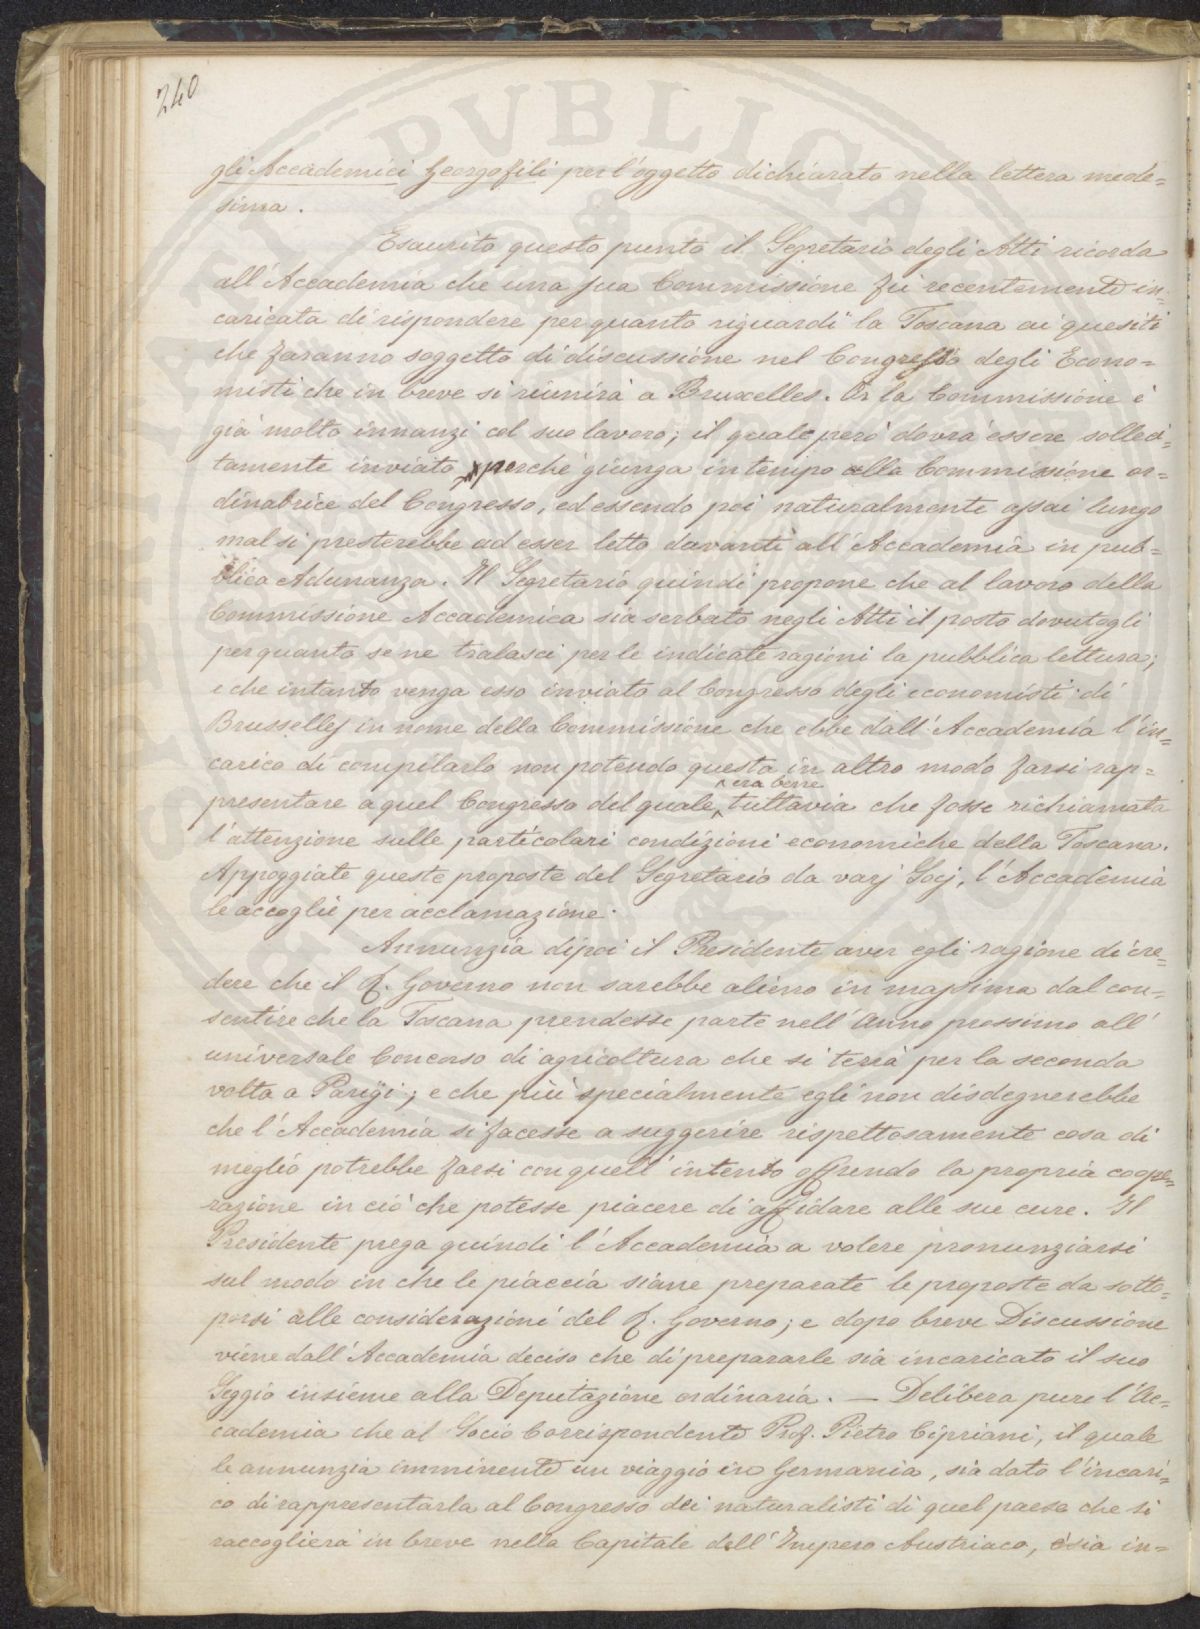 240
gli Accademici Georgofili per l'oggetto dichiarato nella lettera mede=
sima.
Esaurito questo punto il Segretario degli Atti ricorda
all'Accademia che una sua Commissione fu recentemente in=
caricata di rispondere per quanto riguardi la Toscana ai quesiti
che faranno soggetto di discussione nel Congresso degli Econo=
misti che in breve si riunirà a Bruxelles. Or la Commissione è
già molto innanzi col suo lavoro; il quale però dovrà essere solleci=
tamente inviato perchè giunga in tempo alla Commissione or=
dinatrice del Congresso, ed essendo poi naturalmente assai lungo
mal si presterebbe ad esser letto davanti all'Accademia in pub=
blica Adunanza. Il Segretario quindi propone che al lavoro della
Commissione Accademica sia serbato negli Atti il posto dovutogli
per quanto se ne tralasci per le indicate ragioni la pubblica lettura;
e che intanto venga esso inviato al Congresso degli economisti di
Brusselles in nome della Commissione che ebbe dall'Accademia l'in=
carico di compilarlo non potendo questa in altro modo farsi rap=
era bene
presentare a quel Congresso del quale, tuttavia che fosse richiamata
l'attenzione sulle particolari condizioni economiche della Toscana.
Appoggiate queste proposte del Segretario da varj Socj, l'Accademia
le accoglie per acclamazione.
Annunzia dipoi il Presidente aver egli ragione di cre=
dere che il R. Governo non sarebbe alieno in massima dal con=
sentire che la Toscana prendesse parte nell'Anno prossimo all'
universale Concorso di agricoltura che si terrà per la seconda
volta a Parigi; e che più specialmente egli non disdegnerebbe
che l'Accademia si facesse a suggerire rispettosamente cosa di
meglio potrebbe farsi con quell'intento offrendo la propria coope=
razione in ciò che potesse piacere di affidare alle sue cure. Il
Presidente prega quindi l'Accademia a volere pronunziarsi
sul modo in che le piaccia siane preparate le proposte da sotto=
porsi alle considerazioni del R. Governo; e dopo breve Discussione
viene dall'Accademia deciso che di prepararle sia incaricato il suo
Seggio insieme alla Deputazione ordinaria. — Delibera pure l'Ac=
cademia che al Socio Corrispondente Prof. Pietro Cipriani, il quale
le annunzia imminente un viaggio in Germania, sia dato l'incari=
co di rappresentarla al Congresso dei naturalisti di quel paese che si
raccoglierà in breve nella Capitale dell'Impero Austriaco, e sia in=